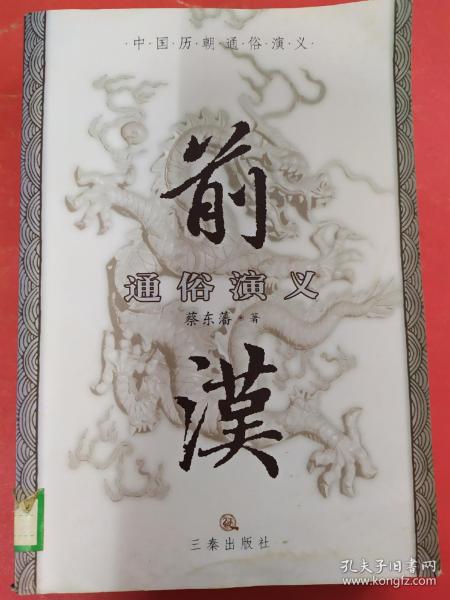 ·中·国·历·朝·通·俗·演·义·
前
通俗演义
蔡东藩·著
漢
三秦出版社
孔夫子旧书网
www.kongfz.com